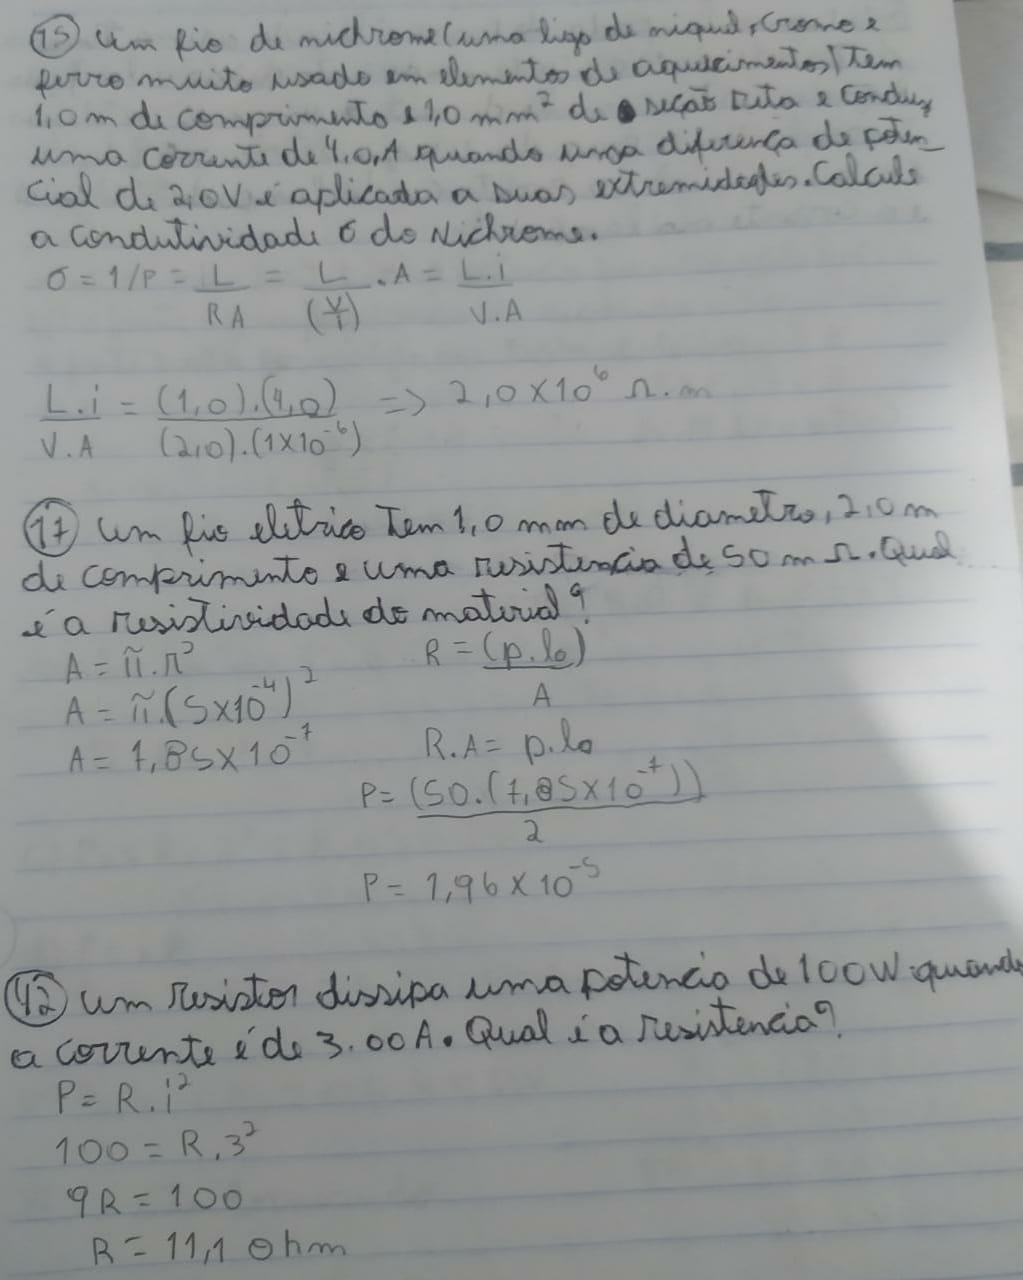 15 Um fio de nichrome (uma liga de niquel, Cromo e
ferro muito usado em elementos de aquecimentos) Tem
1,0 m de comprimento e 1,0 mm² de seção reta e conduz
uma corrente de 4,0 A quando uma diferença de poten_
cial de 2,0V é aplicada a suas extremidades. Calcule
a condutividade σ do Nichrome.
σ = 1/P = L / RA = L / (V/I) . A = L.i / V.A
L.i / V.A = (1,0).(4,0) / (2,0).(1x10⁻⁶) => 2,0 x 10⁶ Ω.m
17 Um fio eletrico Tem 1,0 mm de diametro, 2,0 m
de comprimento e uma resistencia de 50 m Ω. Qual
é a resistividade do material?
A = π.r²
R = (p.lo) / A
A = π.(5x10⁻⁴)²
A = 7,85x10⁻⁷
R.A = p.lo
P = (50.(7,85x10⁻⁷)) / 2
P = 1,96 x 10⁻⁵
42 Um resistor dissipa uma potencia de 100W quando
a corrente é de 3.00A. Qual é a resistencia?
P = R.i²
100 = R.3²
9R = 100
R = 11,1 Ohm